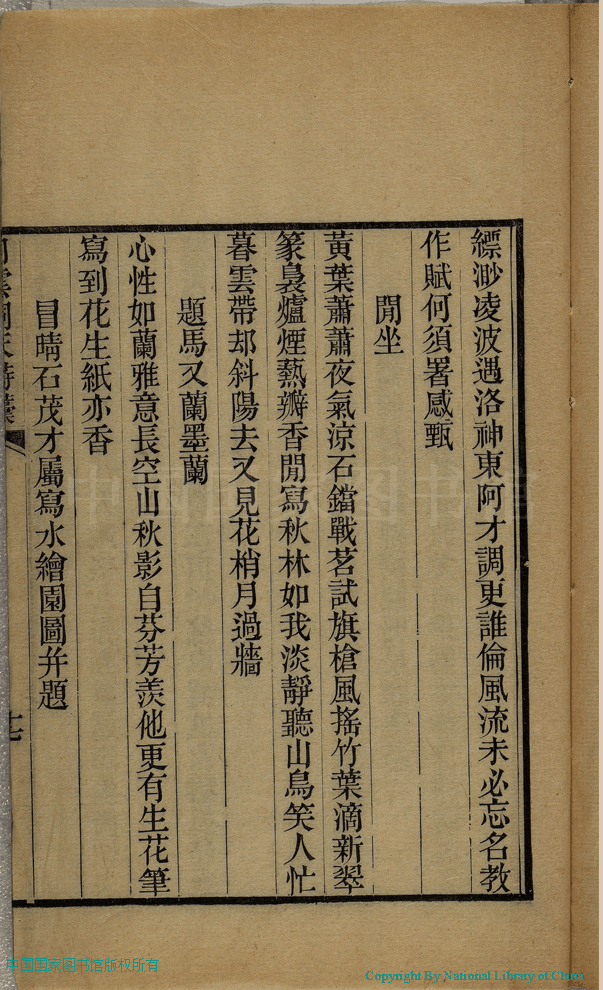 縹渺凌波遇洛神東阿才調更誰倫風流未必忘名教
作賦何須署感甄
閒坐
黃葉蕭蕭夜氣涼石鐺戰茗試旗槍風搖竹葉滴新翠
篆裊爐煙熱瓣香閒寫秋林如我淡靜聽山鳥笑人忙
暮雲帶却斜陽去又見花梢月過牆
題馬又蘭墨蘭
心性如蘭雅意長空山秋影自芬芳羨他更有生花筆
寫到花生紙亦香
冒晴石茂才屬寫水繪園圖并題
十七
中国国家图书馆版权所有
Copyright By National Library of China